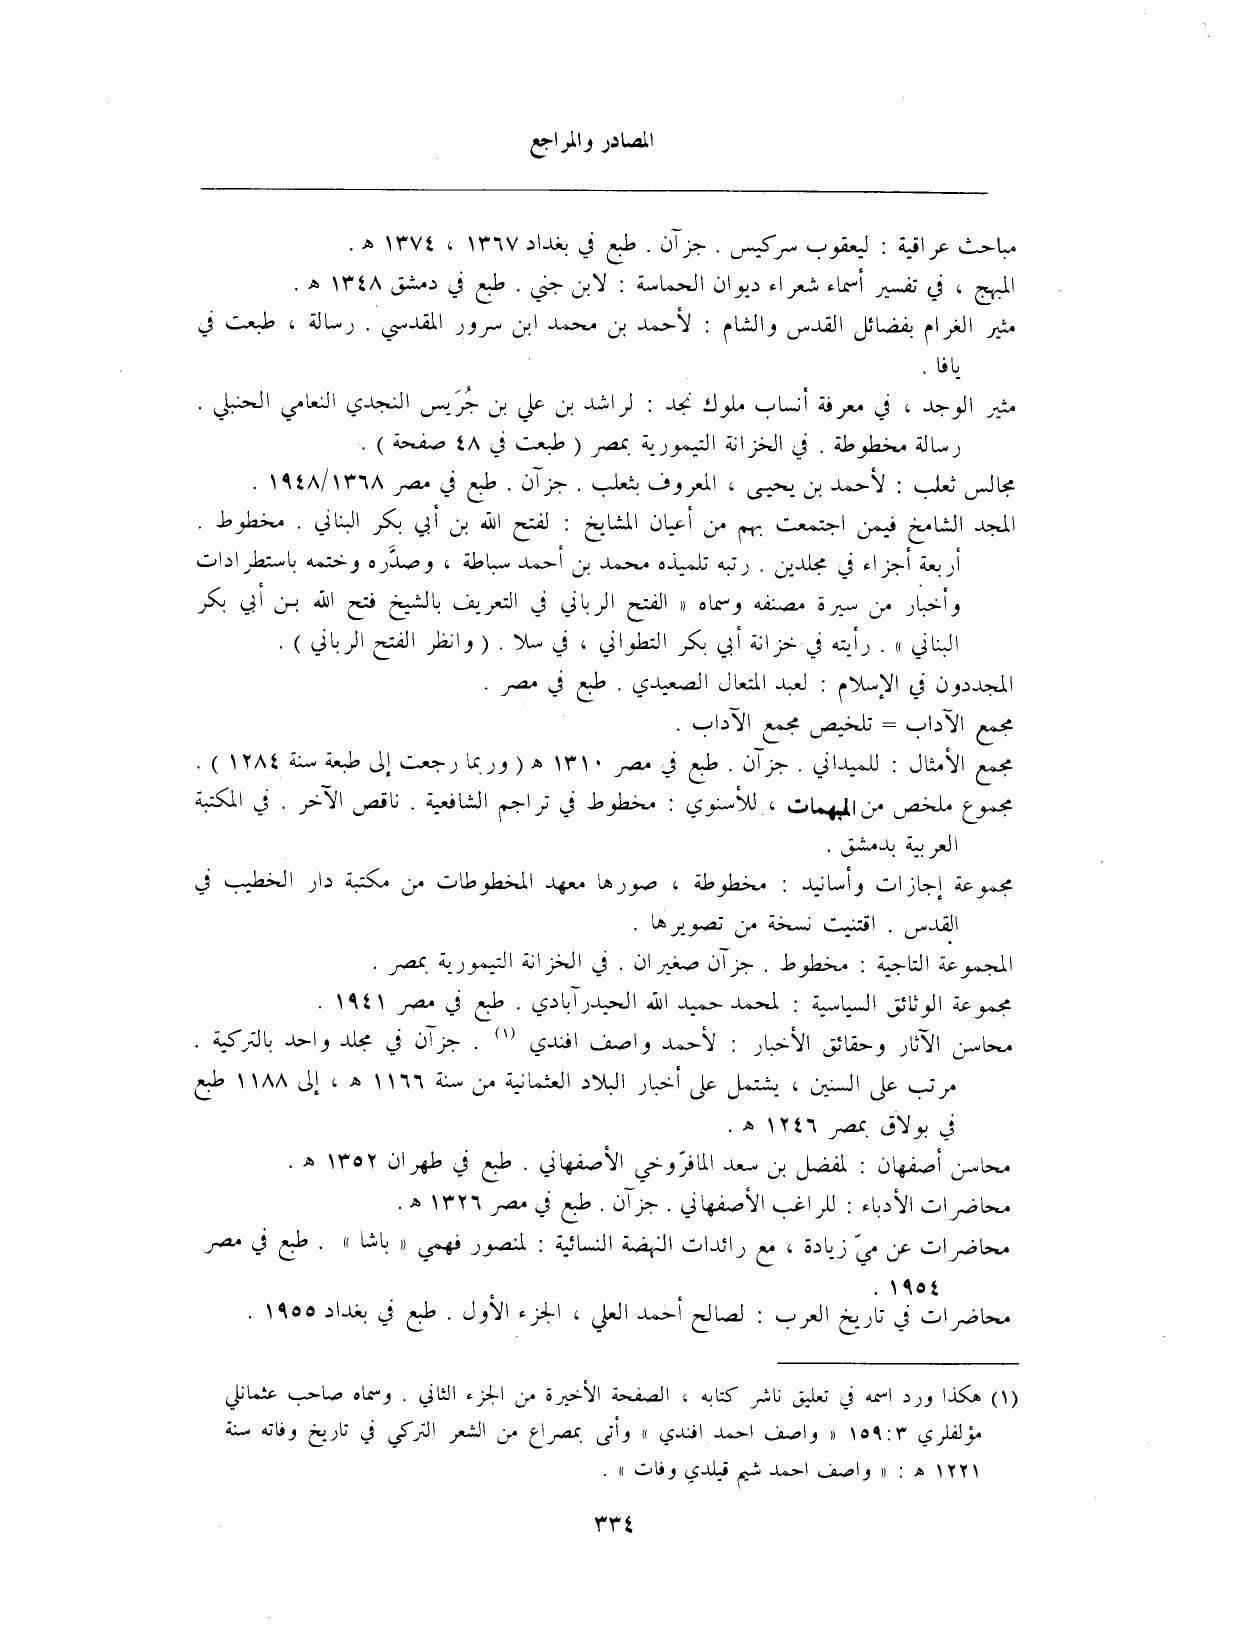 المصادر والمراجع
مباحث عراقية : ليعقوب سركيس . جزآن . طبع في بغداد ١٣٦٧ ، ١٣٧٤ ه .
المبهج ، في تفسير أسماء شعراء ديوان الحماسة : لابن جني . طبع في دمشق ١٣٤٨ ه .
مثير الغرام بفضائل القدس والشام : لأحمد بن محمد ابن سرور المقدسي . رسالة ، طبعت في
يافا .
مثير الوجد ، في معرفة أنساب ملوك نجد : لراشد بن علي بن جُرَيس النجدي النعامي الحنبلي .
رسالة مخطوطة . في الخزانة التيمورية بمصر ( طبعت في ٤٨ صفحة ) .
مجالس ثعلب : لأحمد بن يحيى ، المعروف بثعلب . جزآن . طبع في مصر ١٩٤٨/١٣٦٨ .
المجد الشامخ فيمن اجتمعت بهم من أعيان المشايخ : لفتح الله بن أبي بكر البناني . مخطوط .
أربعة أجزاء في مجلدين . رتبه تلميذه محمد بن أحمد سباطة ، وصدَّره وختمه باستطرادات
وأخبار من سيرة مصنفه وسماه « الفتح الرباني في التعريف بالشيخ فتح الله بن أبي بكر
البناني » . رأيته في خزانة أبي بكر التطواني ، في سلا . ( وانظر الفتح الرباني ) .
المجددون في الإسلام : لعبد المتعال الصعيدي . طبع في مصر .
مجمع الآداب = تلخيص مجمع الآداب .
مجمع الأمثال : للميداني . جزآن . طبع في مصر ١٣١٠ ه ( وربما رجعت إلى طبعة سنة ١٢٨٤ ) .
مجموع ملخص من المبهمات ، للأسنوي : مخطوط في تراجم الشافعية . ناقص الآخر . في المكتبة
العربية بدمشق .
مجموعة إجازات وأسانيد : مخطوطة ، صورها معهد المخطوطات من مكتبة دار الخطيب في
القدس . اقتنيت نسخة من تصويرها .
المجموعة التاجية : مخطوط . جزآن صغيران . في الخزانة التيمورية بمصر .
مجموعة الوثائق السياسية : لمحمد حميد الله الحيدرآبادي . طبع في مصر ١٩٤١ .
محاسن الآثار وحقائق الأخبار : لأحمد واصف افندي (١) . جزآن في مجلد واحد بالتركية .
مرتب على السنين ، يشتمل على أخبار البلاد العثمانية من سنة ١١٦٦ ه ، إلى ١١٨٨ طبع
في بولاق بمصر ١٢٤٦ ه .
محاسن أصفهان : لمفضل بن سعد المافرّوخي الأصفهاني . طبع في طهران ١٣٥٢ ه .
محاضرات الأدباء : للراغب الأصفهاني . جزآن . طبع في مصر ١٣٢٦ ه .
محاضرات عن ميّ زيادة ، مع رائدات النهضة النسائية : لمنصور فهمي « باشا » . طبع في مصر
١٩٥٤ .
محاضرات في تاريخ العرب : لصالح أحمد العلي ، الجزء الأول . طبع في بغداد ١٩٥٥ .
(١) هكذا ورد اسمه في تعليق ناشر كتابه ، الصفحة الأخيرة من الجزء الثاني . وسماه صاحب عثمانلي
مؤلفلري ٣ : ١٥٩ « واصف احمد افندي » وأتى بمصراع من الشعر التركي في تاريخ وفاته سنة
١٢٢١ ه : « واصف احمد شيم قيلدي وفات » .
٣٣٤